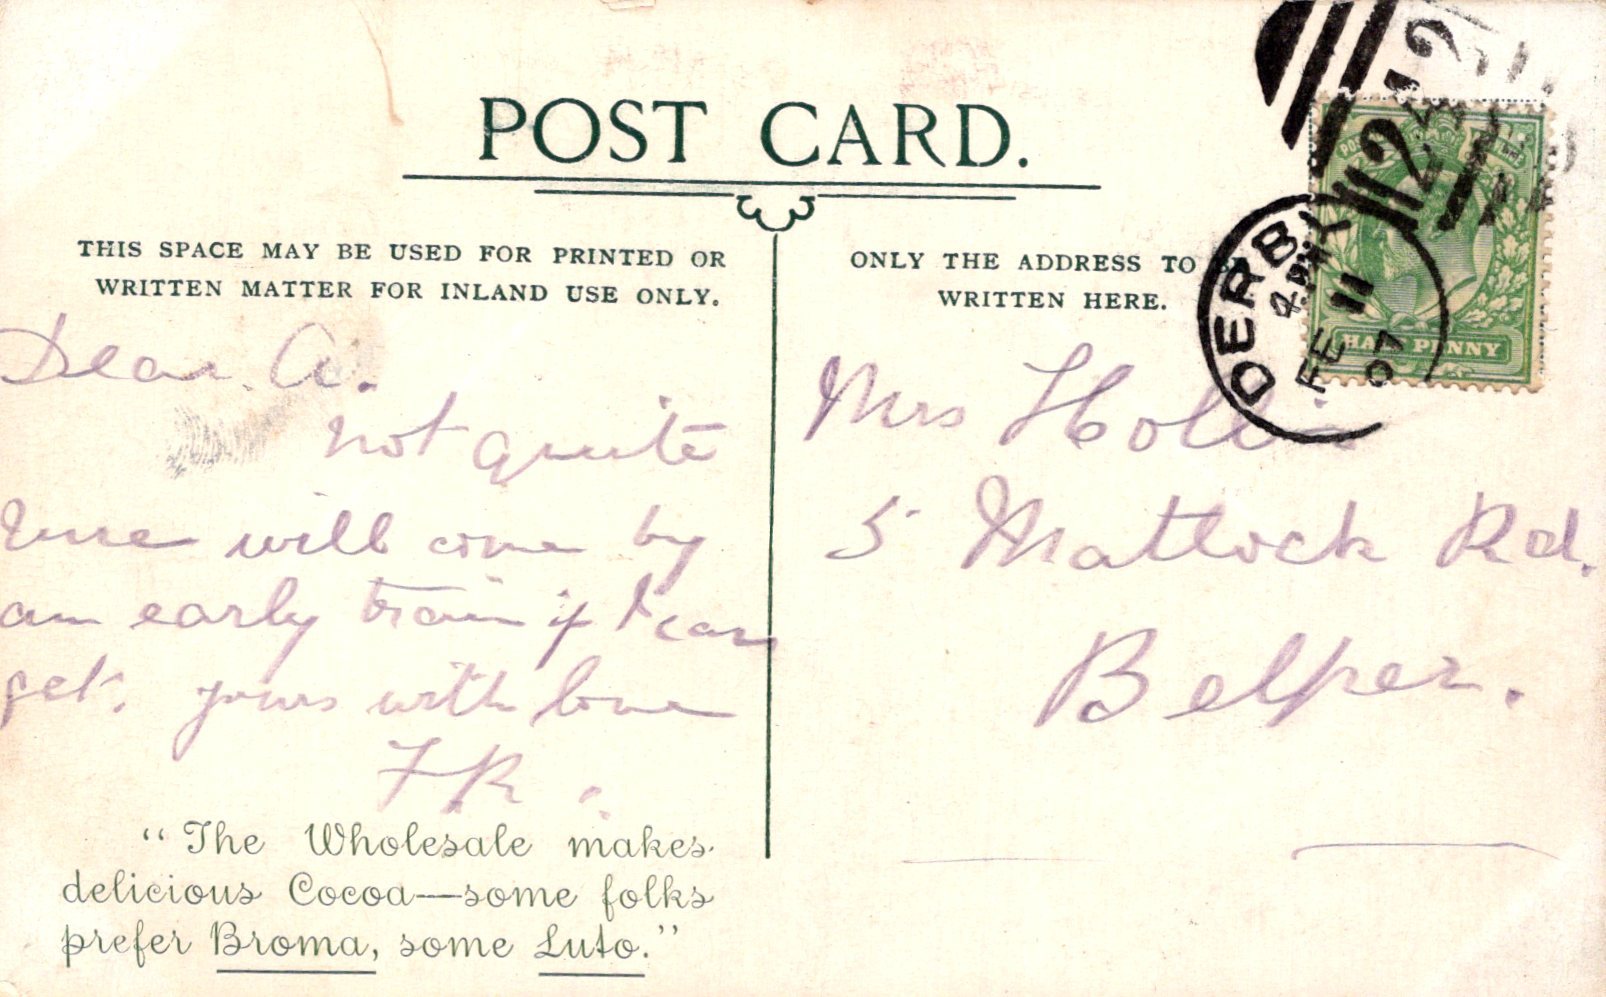 POST CARD.
THIS SPACE MAY BE USED FOR PRINTED OR
WRITTEN MATTER FOR INLAND USE ONLY.
Dear A.
not quite
sure will come by
an early train if I can
get. yours with love
F.R.
"The Wholesale makes
delicious Cocoa—some folks
prefer Broma, some Luto."
ONLY THE ADDRESS TO BE
WRITTEN HERE.
Mrs
5 Matlock Rd.
Belper.
DERBY
4 PM
FE 11
07
HALF PENNY